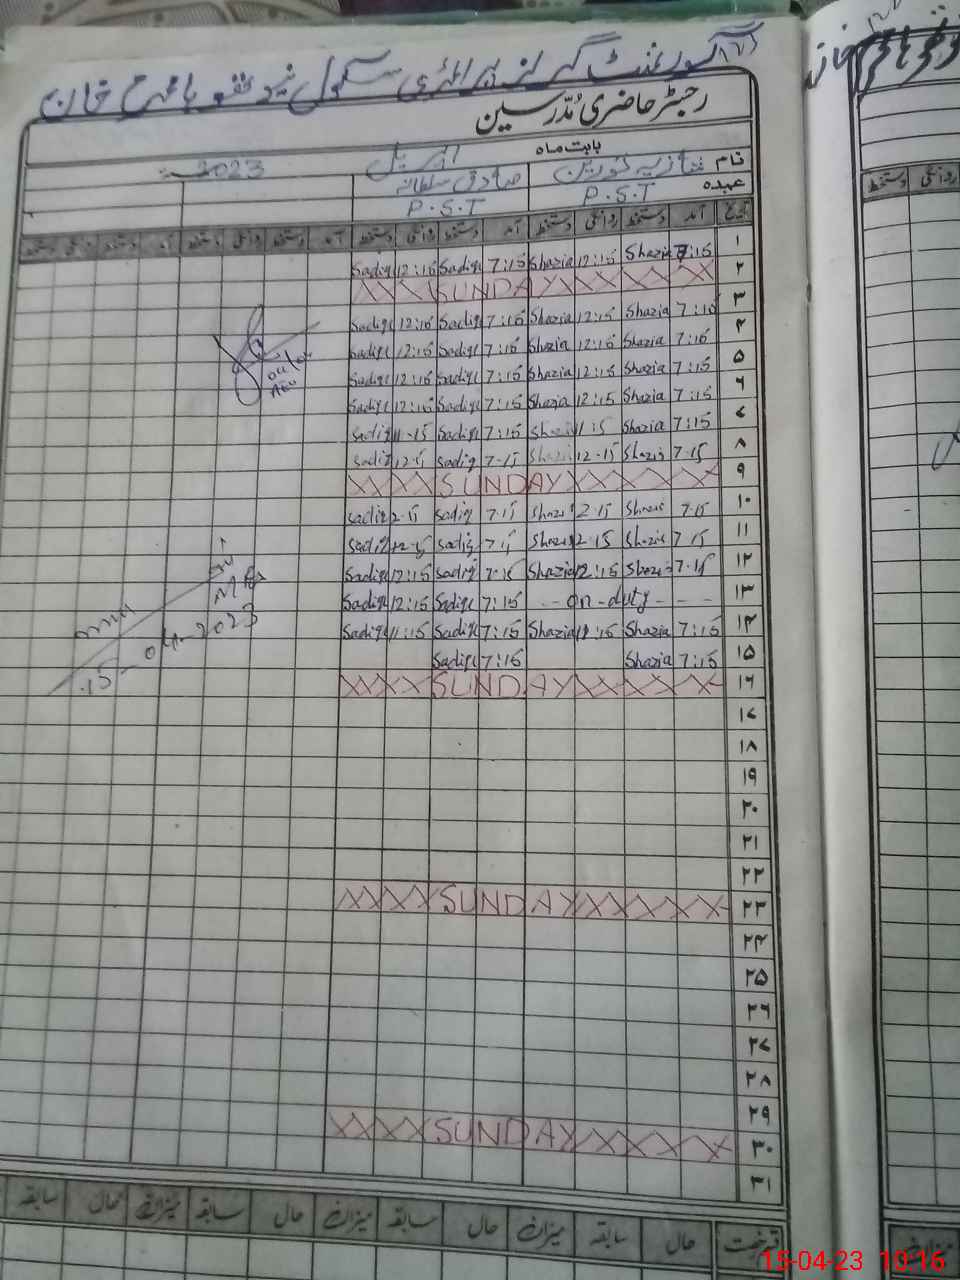 گورنمنٹ گرلز پرائمری سکول
رجسٹر حاضری مُدّرسین
بابت ماہ اپریل 2023
نام شازیہ نورین صادق سلطانہ
عہدہ P.S.T P.S.T
تاریخ آمد دستخط روانگی دستخط آمد دستخط روانگی دستخط آمد دستخط روانگی دستخط آمد دستخط روانگی دستخط
۱ 7:15 Shazia 12:15 Shazia 7:15 Sadiq 12:15 Sadiq
۲ XXXX SUNDAY XXXXX
۳ 7:15 Shazia 12:15 Shazia 7:15 Sadiq 12:15 Sadiq
۴ 7:15 Shazia 12:15 Shazia 7:15 Sadiq 12:15 Sadiq
۵ 7:15 Shazia 12:15 Shazia 7:15 Sadiq 12:15 Sadiq
۶ 7:15 Shazia 12:15 Shazia 7:15 Sadiq 12:15 Sadiq
۷ 7:15 Shazia 11:15 Shazia 7:15 Sadiq 11-15 Sadiq
۸ 7-15 Shazia 12-15 Shazia 7-15 Sadiq 12-15 Sadiq
۹ XXXX SUNDAY XXXXX
۱۰ 7-15 Shazia 12-15 Shazia 7-15 Sadiq 12-15 Sadiq
۱۱ 7-15 Shazia 12-15 Shazia 7-15 Sadiq 12-15 Sadiq
۱۲ 7-15 Shazia 12:15 Shazia 7-15 Sadiq 12:15 Sadiq
۱۳ -- on-duty - - - 7:15 Sadiq 12:15 Sadiq
۱۴ 7:15 Shazia 11:15 Shazia 7:15 Sadiq 11:15 Sadiq
۱۵ 7:15 Shazia 7:15 Sadiq
15-04-2023
۱۶ XXXX SUNDAY XXXXX
۱۷
۱۸
۱۹
۲۰
۲۱
۲۲
۲۳ XXXX SUNDAY XXXXX
۲۴
۲۵
۲۶
۲۷
۲۸
۲۹
۳۰ XXXX SUNDAY XXXXX
۳۱
رخصت حال سابقہ میزان حال سابقہ میزان حال سابقہ میزان حال سابقہ
15-04-23 10:16